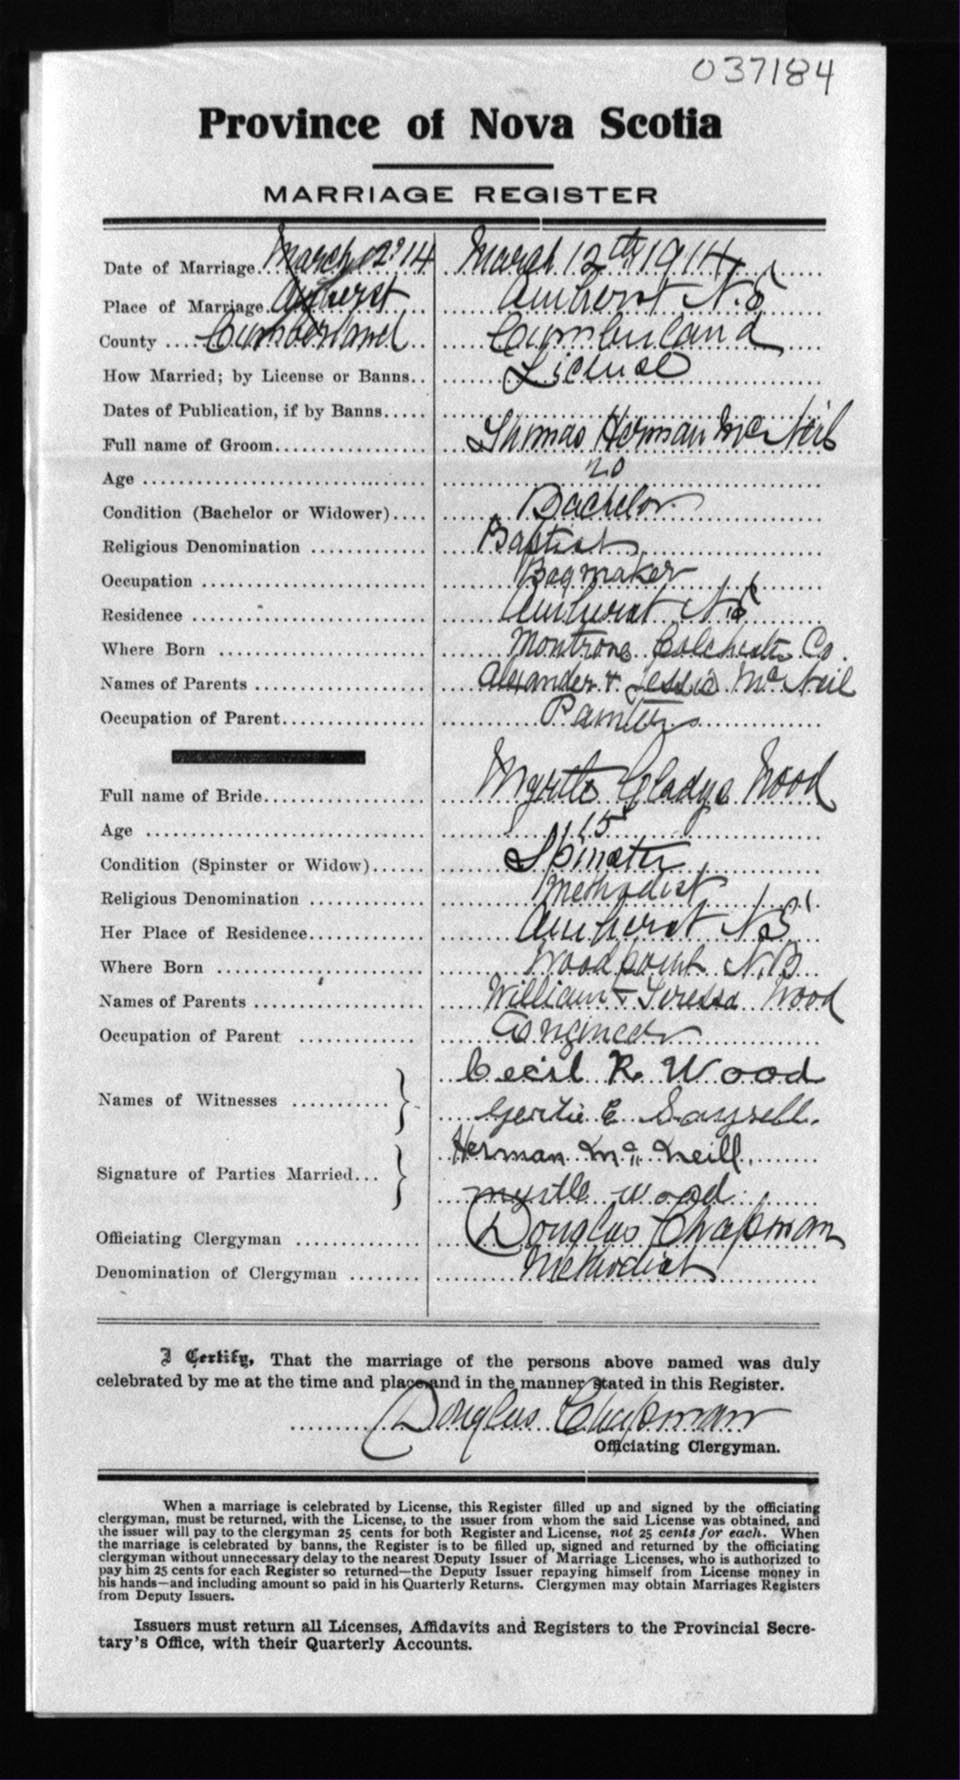 037184
Province of Nova Scotia
MARRIAGE REGISTER
Date of Marriage. March 12 '14 March 12th 1914
Place of Marriage Amherst Amherst N.S
County .... Cumberland Cumberland
How Married; by License or Banns.. License
Dates of Publication, if by Banns.....
Full name of Groom................ Thomas Herman McNeil
Age ........................ 20
Condition (Bachelor or Widower).... Bachelor
Religious Denomination ............ Baptist
Occupation ...................... Bagmaker
Residence ....................... Amherst N.S
Where Born ..................... Montrose Colchester Co.
Names of Parents ................. Alexander & Jessie McNeil
Occupation of Parent............... Painter
Full name of Bride................. Myrtle Gladys Wood
Age ........................... 15
Condition (Spinster or Widow)...... Spinster
Religious Denomination ............ Methodist
Her Place of Residence............. Amherst N.S
Where Born ..................... Woodpoint N.B.
Names of Parents ................. William & Teressa Wood
Occupation of Parent ............ Engineer
Names of Witnesses ........... } Cecil R. Wood
Gertie E
Signature of Parties Married... } Herman Mc Neill.
myrtle wood
Officiating Clergyman ............. Douglas Chapman
Denomination of Clergyman ........ Methodist
I Certify, That the marriage of the persons above named was duly
celebrated by me at the time and place and in the manner stated in this Register.
Douglas Chapman
Officiating Clergyman.
When a marriage is celebrated by License, this Register filled up and signed by the officiating
clergyman, must be returned, with the License, to the issuer from whom the said License was obtained, and
the issuer will pay to the clergyman 25 cents for both Register and License, not 25 cents for each. When
the marriage is celebrated by banns, the Register is to be filled up, signed and returned by the officiating
clergyman without unnecessary delay to the nearest Deputy Issuer of Marriage Licenses, who is authorized to
pay him 25 cents for each Register so returned—the Deputy Issuer repaying himself from License money in
his hands—and including amount so paid in his Quarterly Returns. Clergymen may obtain Marriages Registers
from Deputy Issuers.
Issuers must return all Licenses, Affidavits and Registers to the Provincial Secre-
tary's Office, with their Quarterly Accounts.